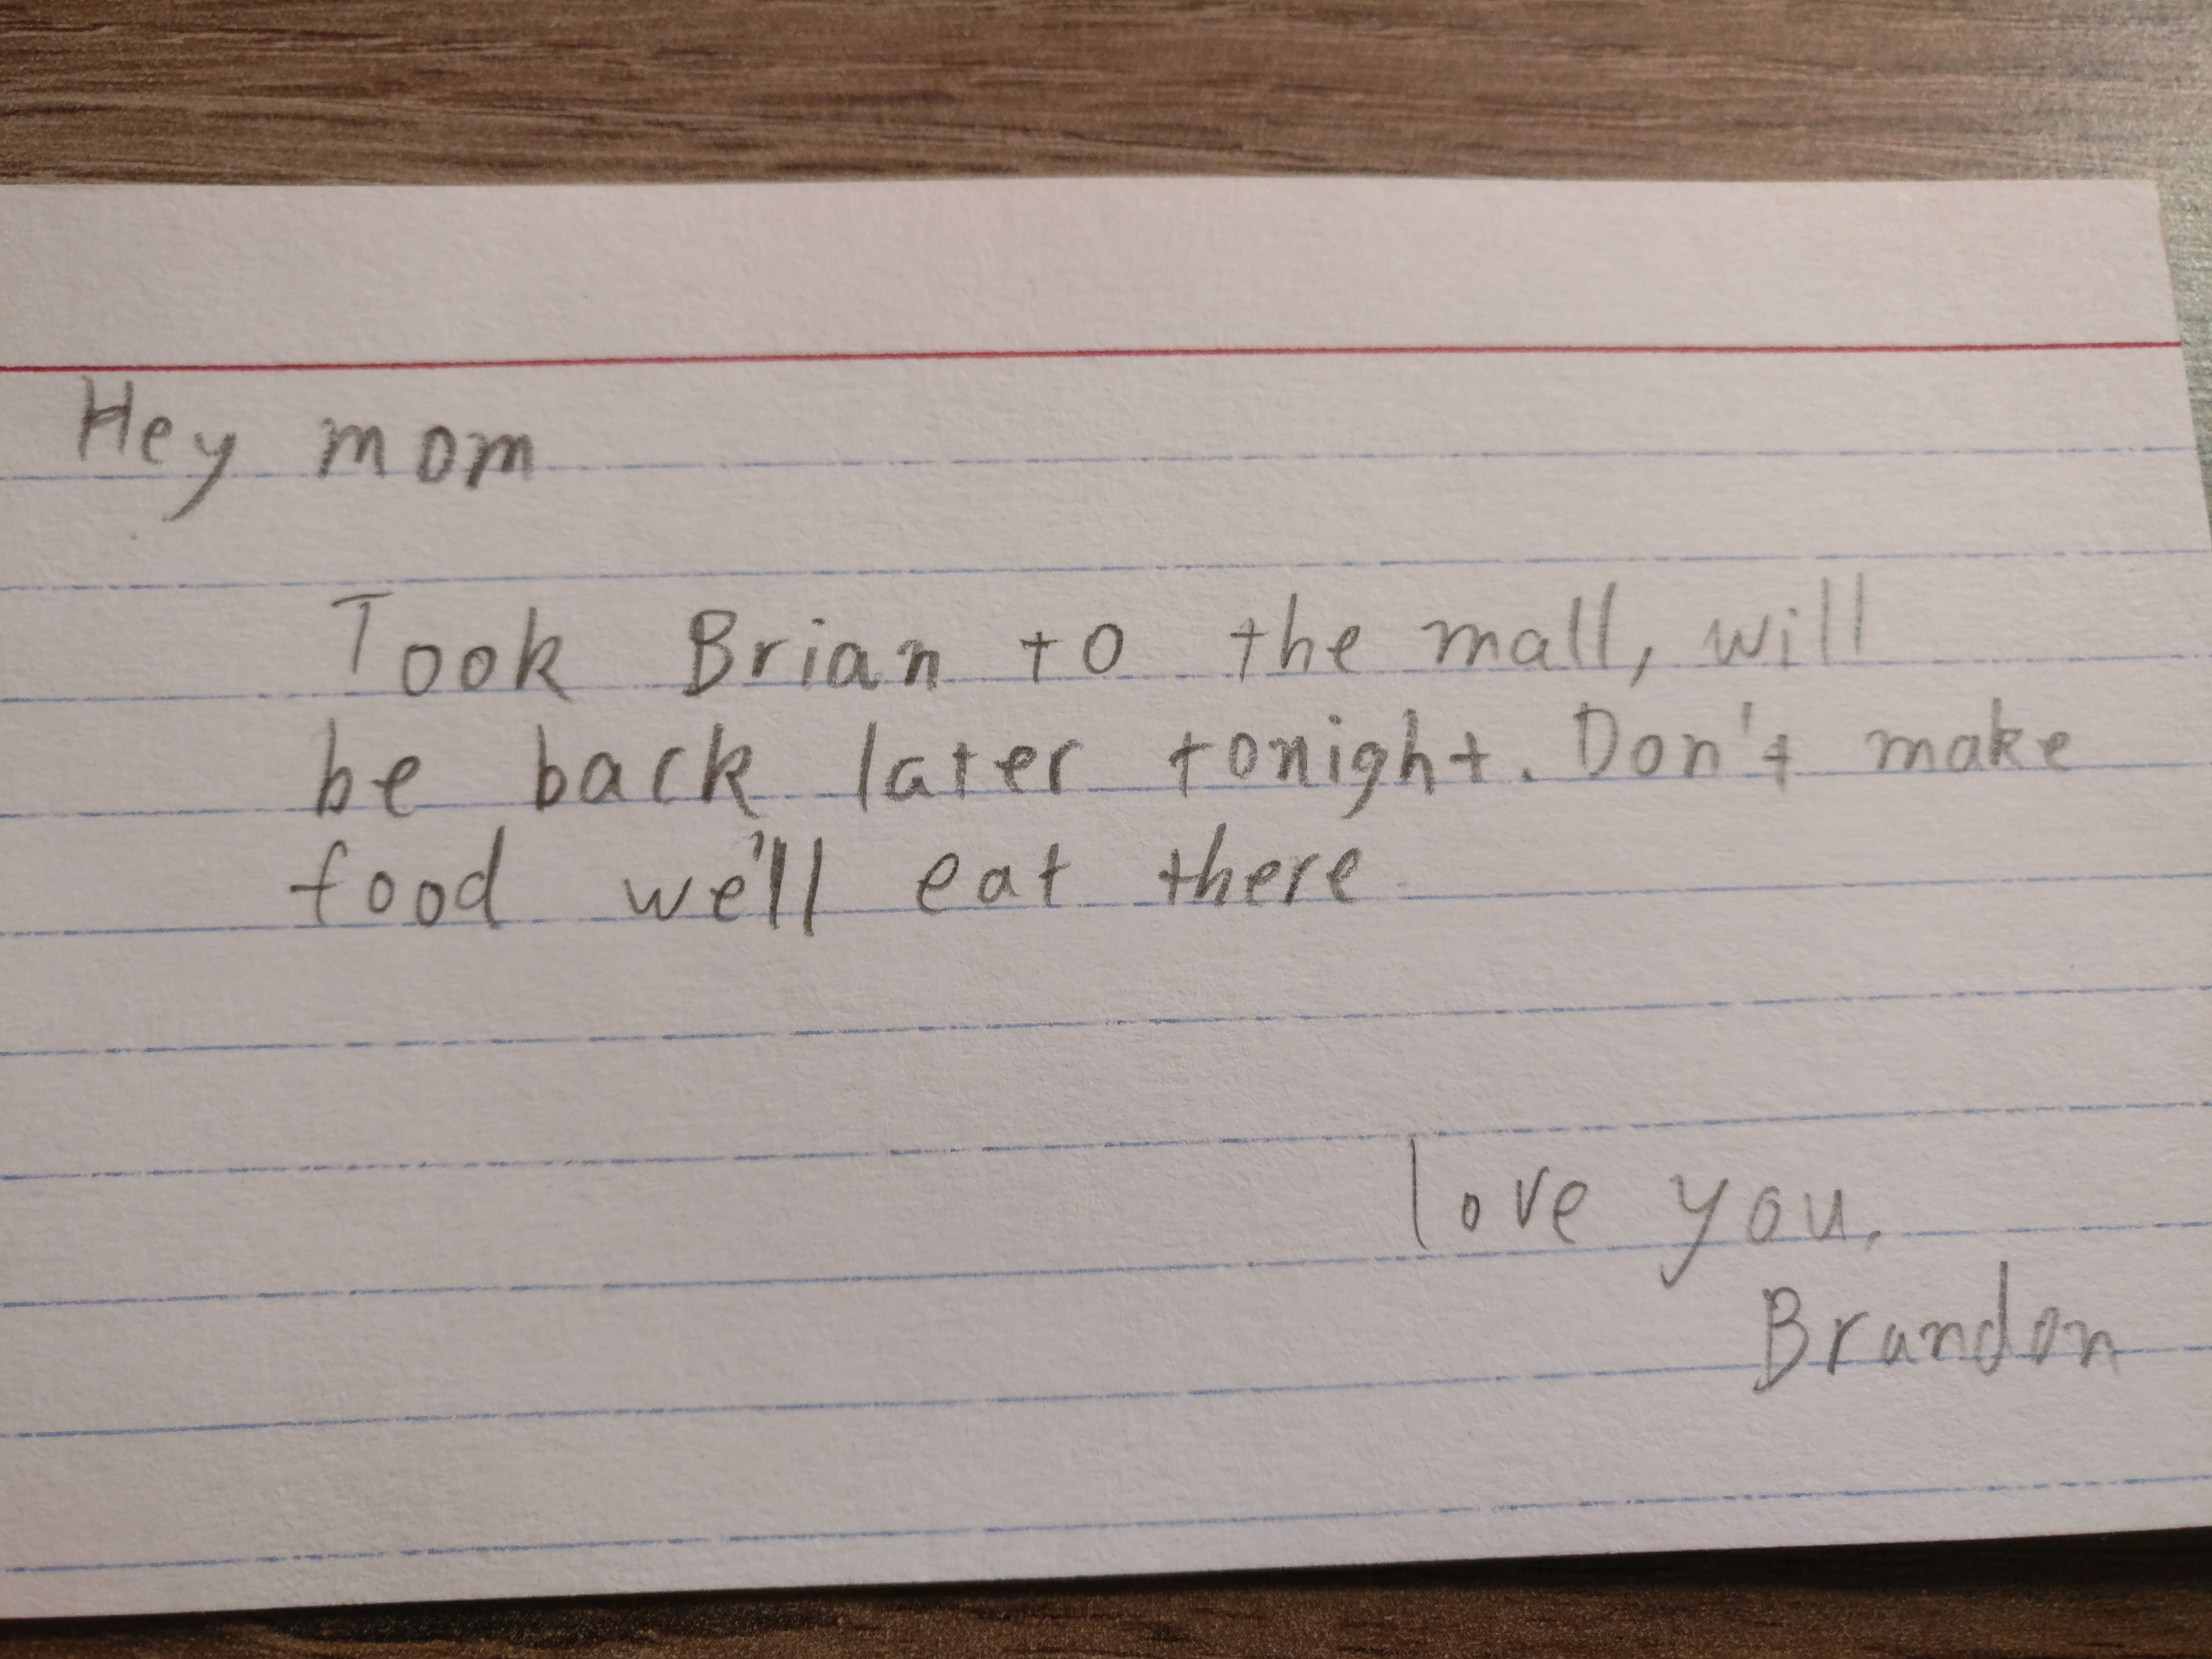 Hey mom
Took Brian to the mall, will
be back later tonight. Don't make
food we'll eat there
love you,
Brandon